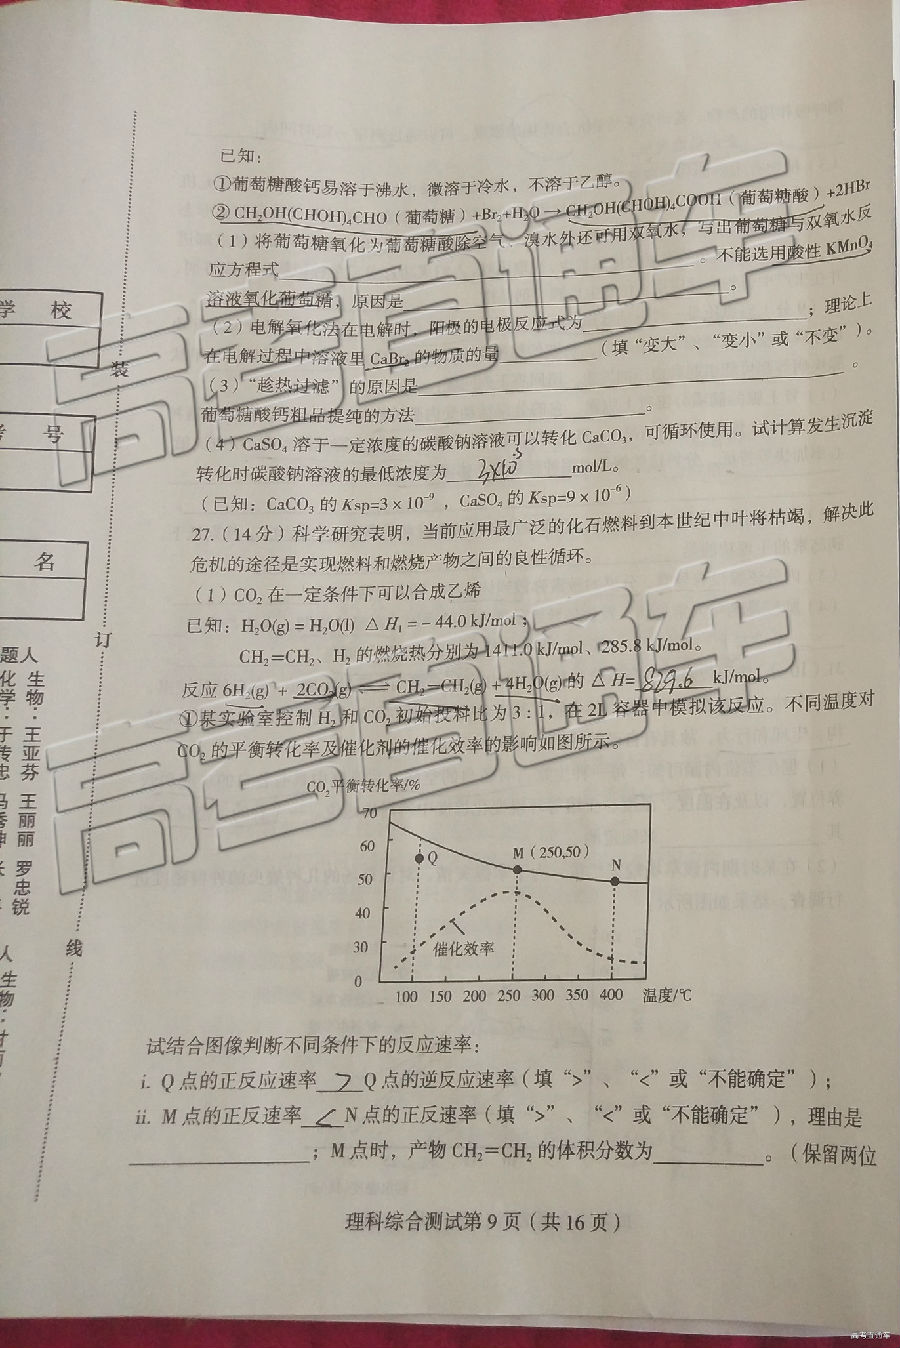 已知：
①葡萄糖酸钙易溶于沸水，微溶于冷水，不溶于乙醇。
②CH₂OH(CHOH)₄CHO（葡萄糖）+Br₂+H₂O→CH₂OH(CHOH)₄COOH（葡萄糖酸）+2HBr
（1）将葡萄糖氧化为葡萄糖酸除空气、溴水外还可用双氧水，写出葡萄糖与双氧水反
应方程式 。不能选用酸性KMnO₄
溶液氧化葡萄糖，原因是 。
（2）电解氧化法在电解时，阳极的电极反应式为 ；理论上
在电解过程中溶液里CaBr₂的物质的量 （填“变大”、“变小”或“不变”）。
（3）“趁热过滤”的原因是 。
葡萄糖酸钙粗品提纯的方法 。
（4）CaSO₄溶于一定浓度的碳酸钠溶液可以转化CaCO₃，可循环使用。试计算发生沉淀
转化时碳酸钠溶液的最低浓度为 3×10⁻³ mol/L。
（已知：CaCO₃的Ksp=3×10⁻⁹，CaSO₄的Ksp=9×10⁻⁶）
27.（14分）科学研究表明，当前应用最广泛的化石燃料到本世纪中叶将枯竭，解决此
危机的途径是实现燃料和燃烧产物之间的良性循环。
（1）CO₂在一定条件下可以合成乙烯
已知：H₂O(g)=H₂O(l) △H₁=－44.0 kJ/mol；
CH₂=CH₂、H₂的燃烧热分别为1411.0 kJ/mol、285.8 kJ/mol。
反应6H₂(g)+2CO₂(g)⇌CH₂=CH₂(g)+4H₂O(g)的△H= 829.6 kJ/mol。
①某实验室控制H₂和CO₂初始投料比为3:1，在2L容器中模拟该反应。不同温度对
CO₂的平衡转化率及催化剂的催化效率的影响如图所示。
CO₂平衡转化率/%
70
60
50
40
30
0
Q
M（250,50）
N
催化效率
100 150 200 250 300 350 400 温度/℃
试结合图像判断不同条件下的反应速率：
i. Q点的正反应速率 > Q点的逆反应速率（填“>”、“<”或“不能确定”）；
ii. M点的正反速率 < N点的正反速率（填“>”、“<”或“不能确定”），理由是
；M点时，产物CH₂=CH₂的体积分数为 。（保留两位
理科综合测试第9页（共16页）
学 校
考 号
名
装
订
线
题人
生物：王亚芬
王丽丽
罗忠锐
高考直通车
高考直通车
高考直通车